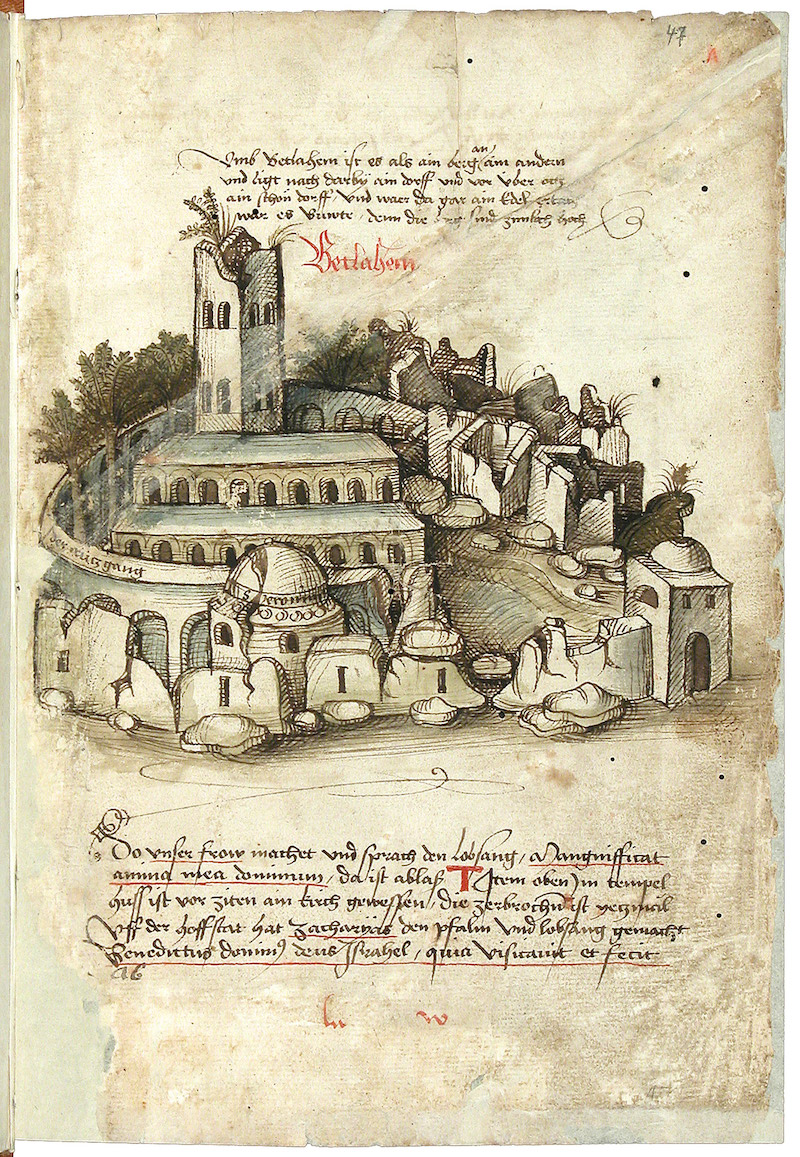 47
A
Umb Betlahem ist es als ain berg an aim andern
und ligt nach darby ain dorff und vor uber och
ain schön dorff, und waer da gar ain Edel
wer es Buwte, denn die sind zimlich hoch
Betlahem
der crütz gang
Jeronimus
Do unser frow machet und sprach den lobsang, Mangnifficat
anima mea dominum, da ist ablas, Item oben Jm tempel
huss ist vor ziten ain kirch gewessen, die zerbrochn ist yetzmal
Uff der hoffstat hat Zacharyas den psalm und lobsang gemacht
Benedictus dominus deus Jsrahel, quia visitavit et fecit